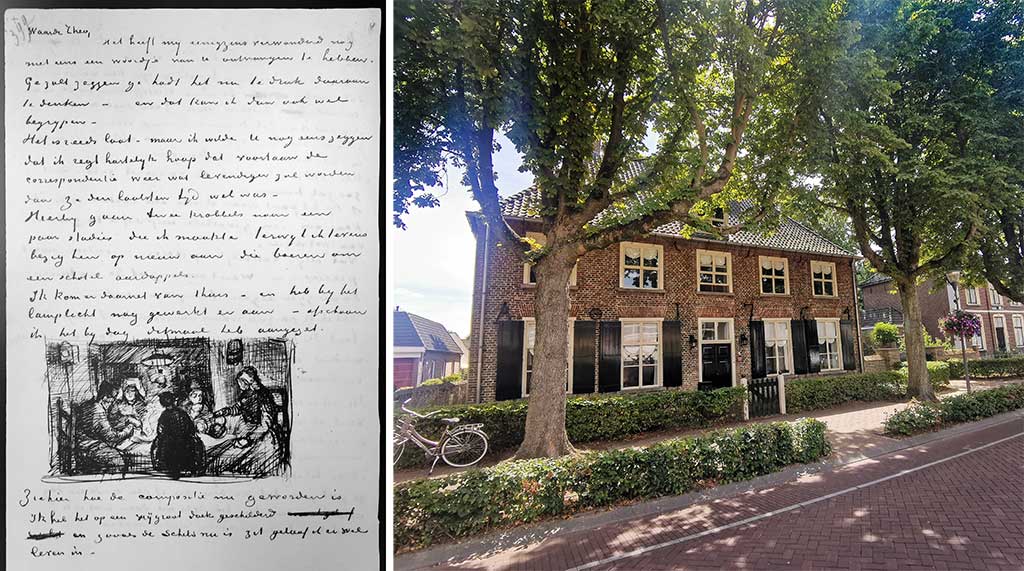 Waarde Theo,
Het heeft mij eenigzins verwonderd nog
niet eens een woordje van U ontvangen te hebben.
Ge zult zeggen ge hadt het nu te druk daaraan
te denken — en dat kan ik dan ook wel
begrijpen —
Het is reeds laat — maar ik wilde U nog eens zeggen
dat ik regt hartelijk hoop dat voortaan de
correspondentie weer wat levendiger zal worden
dan ze den laatsten tijd wel was —
Hierbij gaan twee krabbels naar een
paar studies die ik maakte terwijl ik tevens
bezig ben op nieuw aan die boeren om
een schotel aardappels.
Ik kom er daarnet van thuis — en heb bij het
lamplicht nog gewerkt er aan — ofschoon
ik het bij dag ditmaal heb aangezet.
Ziehier hoe de compositie nu geworden is
Ik heb het op een vrij groot doek geschilderd
en zooals de schets nu is zit geloof ik er wel
leven in —